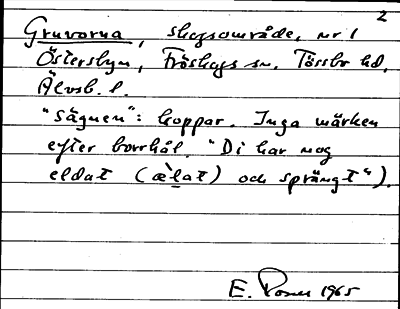 2
Gruvorna, skogsområde, nr 1
Österbyn, Fröskogs sn, Tössbo hd,
Älvsb. l.
"Sägnen": koppar. Inga märken
efter borrhål. "Di har nog
eldat (æ̀lat) och sprängt").
E. 1965